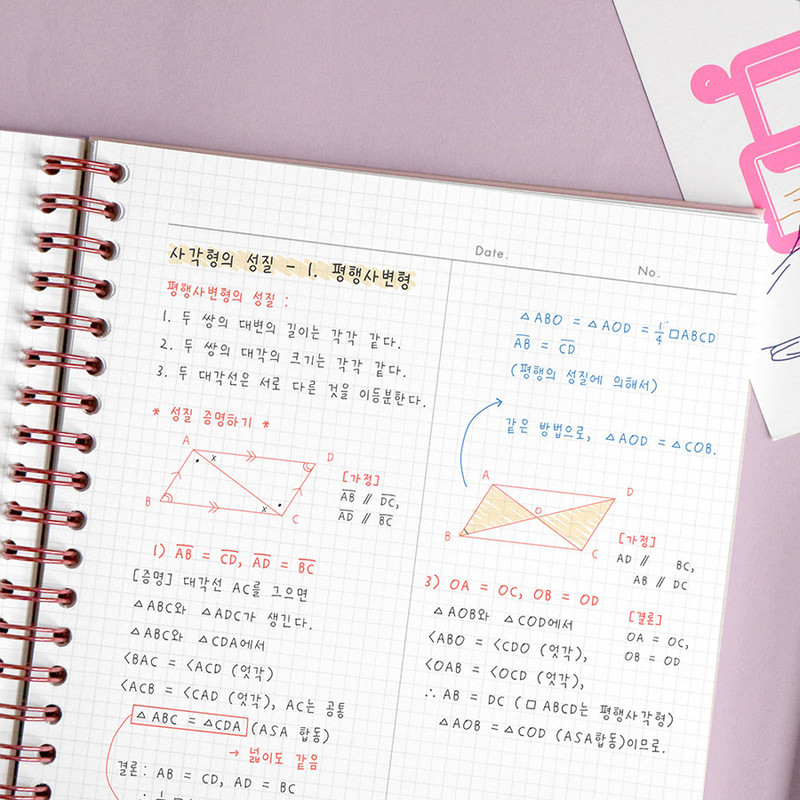 Date.
No.
사각형의 성질 - 1. 평행사변형
평행사변형의 성질 :
1. 두 쌍의 대변의 길이는 각각 같다.
2. 두 쌍의 대각의 크기는 각각 같다.
3. 두 대각선은 서로 다른 것을 이등분한다.
* 성질 증명하기 *
A
D
B
C
x
x
[가정]
A̅B̅ // D̅C̅,
A̅D̅ // B̅C̅
1) A̅B̅ = C̅D̅, A̅D̅ = B̅C̅
[증명] 대각선 AC를 그으면
△ABC와 △ADC가 생긴다.
△ABC와 △CDA에서
<BAC = <ACD (엇각)
<ACB = <CAD (엇각), AC는 공통
△ABC = △CDA (ASA 합동)
→ 넓이도 같음
결론: AB = CD, AD = BC
△ABO = △AOD = 1/4 □ABCD
A̅B̅ = C̅D̅
(평행의 성질에 의해서)
같은 방법으로, △AOD = △COB.
A
D
O
B
C
[가정]
AD // BC,
AB // DC
3) OA = OC, OB = OD
[결론]
OA = OC,
OB = OD
△AOB와 △COD에서
<ABO = <CDO (엇각),
<OAB = <OCD (엇각),
∴ AB = DC (□ABCD는 평행사각형)
△AOB = △COD (ASA합동)이므로.